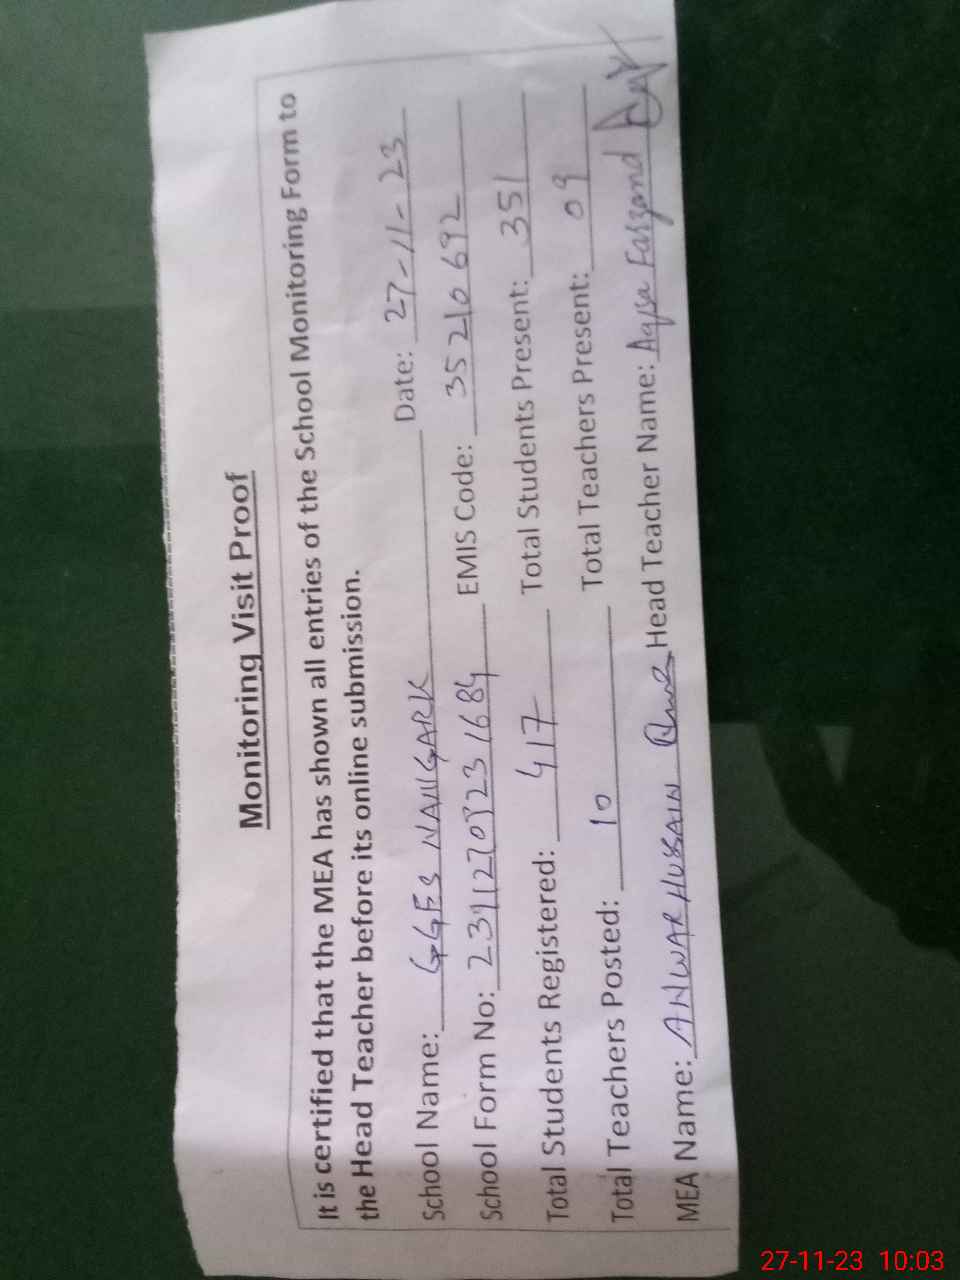 Monitoring Visit Proof
It is certified that the MEA has shown all entries of the School Monitoring Form to
the Head Teacher before its online submission.
School Name: GGES NAIIGARK Date: 27-11-23
School Form No: EMIS Code: 35210692
Total Students Registered: 417 Total Students Present: 351
Total Teachers Posted: 10 Total Teachers Present: 09
MEA Name: ANWAR HUSSAIN Head Teacher Name: Aqsa Farzand
27-11-23 10:03